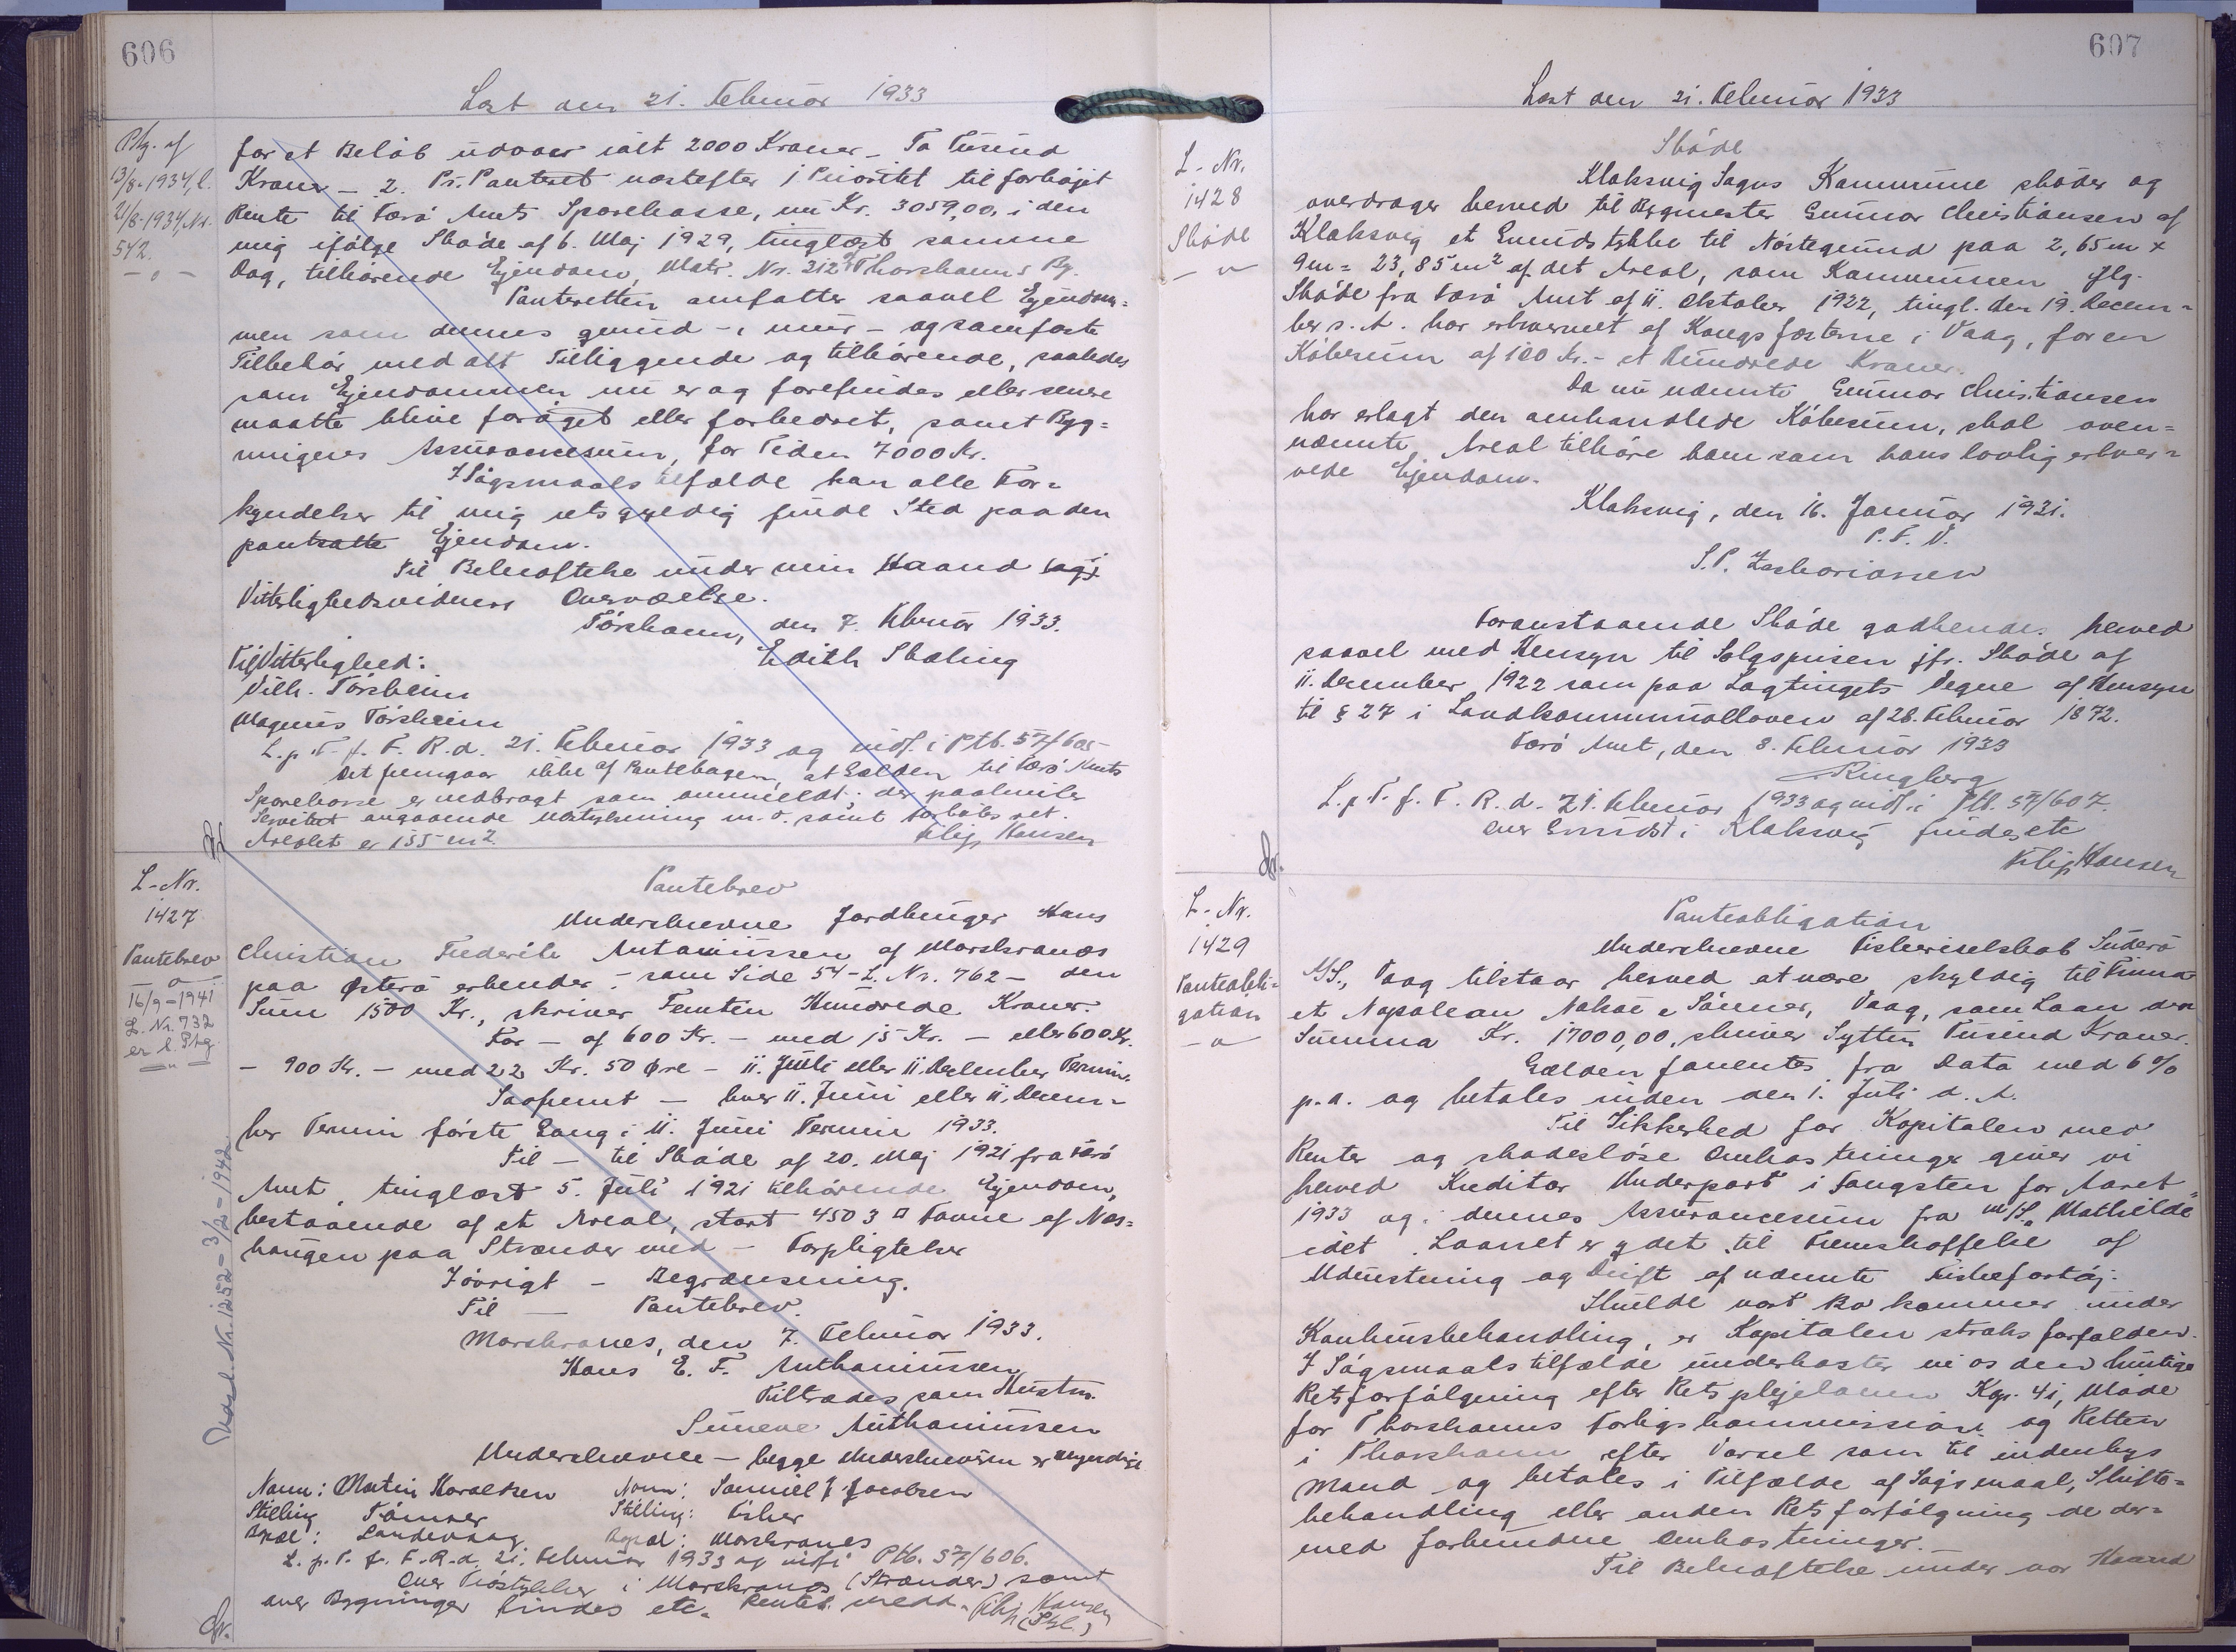 606
Læst den 21. Februar 1933
Ptg. af
13/8-1934, l.
21/8-1934, Nr.
542.
— o —
for et Beløb udover ialt 2000 Kroner - To Tusind
Kroner - 2. Pr. Panteret næstefter 1 Prioritet til forhøjet
Rente til Færø Amts Sparekasse, nu Kr. 3059,00, i den
mig ifølge Skøde af 6. Maj 1929, tinglæst samme
Dag, tilhørende Ejendom, Matr. Nr. 212 Thorshavns By.
Panteretten omfatter saavel Ejendom=
men som dennes grund-, mur- og sømfaste
Tilbehør med alt Tilliggende og tilhørende, saaledes
som Ejendommen nu er og forefindes eller senere
maatte blive forøget eller forbedret, samt Byg=
ningens Assurancesum, for Tiden 7000 Kr.
I Søgsmaalstilfælde kan alle For=
kyndelser til mig retsgyldig finde Sted paa den
pantsatte Ejendom.
Til Bekræftelse under min Haand og i
Vitterlighedsvidners Overværelse.
Tórshavn, den 7. Februar 1933.
Til Vitterlighed: Edith Skæling
Vilh. Tórsheim
Magnus Tórsheim
L. p. T. f. F. R. d. 21. Februar 1933 og indf. i Ptb. 57/605
Det fremgaar ikke af Pantebogen, at Gælden til Færø Amts
Sparekasse er nedbragt som anmeldt; der paahviler
Servitut angaaende udstykning m. v. samt forkøbsret.
Arealet er 155 m².
Filip Hansen
L-Nr.
1427
Pantebrev
— o —
16/9-1941
L. Nr. 732
er l. Ptg.
Pantebrev
Underskrevne Jordbruger Hans
Christian Frederik Antoniussen af Morskranes
paa Østerø erkender - som Side 54 - L. Nr. 762 - den
Sum 1500 Kr., skriver Femten Hundrede Kroner.
For - af 600 Kr. - med 15 Kr. - eller 600 Kr.
- 900 Kr. - med 22 Kr. 50 Øre - 11. Juni eller 11. December Termin.
Saafremt - hver 11. Juni eller 11. Decem-
ber Termin første Gang i 11. Juni Termin 1933.
Til - til Skøde af 20. Maj 1921 fra Færø
Amt, tinglæst 5. Juli 1921 tilhørende Ejendom,
bestaaende af et Areal, stort 4503 □ Favne af Næs=
haugen paa Strænder med - Forpligtelser
Iøvrigt - Begrænsning.
Til — Pantebrev.
Morskranes, den 7. Februar 1933.
Hans C. F. Anthoniussen
Tiltrædes som Hustru.
Suneve Anthoniussen
Underskrevne - begge Underskrivere er myndige
Navn: Martin Haraldsen Navn: Samuel J. Jacobsen
Stilling Tømrer Stilling: Fisker
Bopæl: Landevaag Bopæl: Morskranes
L. p. T. f. F. R. d. 21. Februar 1933 og indf. i Ptb. 57/606.
Over Trøstykker i Morskranes (Strænder) samt
over Bygninger findes etc. Rentef. medd. Filip Hansen
(Stgl.)
Gr.
607
Læst den 21. Februar 1933
L-Nr.
1428
Skøde
— o —
Skøde
Klaksvig Sogns Kommune skøder og
overdrager herved til Bygmester Gunnar Christiansen af
Klaksvig et Grundstykke til Nøstegrund paa 2,65 m x
9 m = 23,85 m² af det Areal, som Kommunen iflg.
Skøde fra Færø Amt af 11. Oktober 1922, tingl. den 19. Decem=
ber s. A. har erhvervet af Kongsfæsterne i Vaag, for en
Købesum af 100 Kr. - et Hundrede Kroner.
Da nu nævnte Gunnar Christiansen
har erlagt den omhandlede Købesum, skal oven=
nævnte Areal tilhøre ham som hans lovlig erhver=
vede Ejendom.
Klaksvig, den 16. Januar 1931.
P. F. V.
S. P. Zachariassen
Foranstaaende Skøde godkendes herved
saavel med Hensyn til Salgsprisen jfr. Skøde af
11. December 1922 som paa Lagtingets Vegne af Hensyn
til § 27 i Landkommunalloven af 28. Februar 1872.
Færø Amt, den 8. Februar 1933
Ringberg
L. p. T. f. F. R. d. 21. Februar 1933 og indf. i Ptb. 57/607.
Over Grundst. i Klaksvig findes etc
Filip Hansen
Gr.
L-Nr.
1429
Panteobli=
gation
— o —
Panteobligation
Underskrevne Fiskeriselskab Suderø
A/S., Vaag tilstaar herved at være skyldig til Firma
et Napoleon Nolsøe & Sönner, Vaag, som Laan den
Summa Kr. 17000,00, skriver Sytten Tusind Kroner.
Gælden forrentes fra Dato med 6 %
p. a. og betales inden den 1. Juli d. A.
Til Sikkerhed for Kapitalen med
Renter og skadesløse Omkostninger giver vi
herved Kreditor Underpant i Fangsten for Aaret
1933 og i dennes Assurancesum fra M/S. „Mathilde"
idet Laanet er ydet til Fremskaffelse af
Udrustning og Drift af nævnte Fiskefartøj.
Skulde vort Bo kommer under
Konkursbehandling, er Kapitalen straks forfalden.
I Søgsmaalstilfælde underkaster vi os den hurtige
Retsforfølgning efter Retsplejeloven Kap. 41, Møde
for Thorshavns Forligskommission og Retten
i Thorshavn efter Varsel som til indenbys
Mand og betales i Tilfælde af Søgsmaal, Skifte=
behandling eller anden Retsforfølgning de der=
med forbundne Omkostninger.
Til Bekræftelse under vor Haand